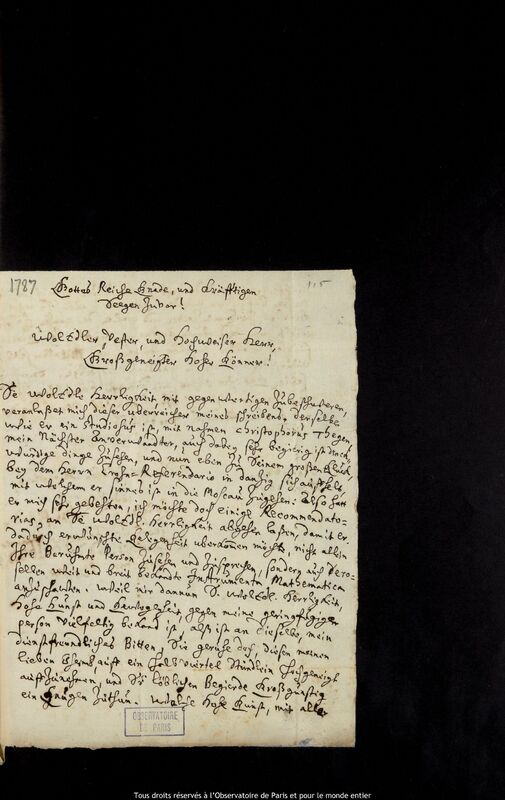 1787
115
Gottes Reiche Gnade, und Kräfftigen
Seegen zuvor!
WolEdler, Vester, und Hochweiser Herr,
Großgeneigter Hoher Gönner!
Se WolEdle Herrligkeit mit gegenwertigen zubeschweren,
veranlaßet mich dieser uberreicher meines schreibens, derselbe
wie er ein Studiosus ist, mit nahmen Christophorus Thegen,
mein Nächster Anverwandter, auch dabey sehr begierig ist durch
würdige dinge zusehen, und nun eben zu seinem großen glück
bey dem Herrn Crohn-Referendario in Danzig sich auffhelt
mit welchem er sinnes ist in die Moscau zugehen: Also hatt
er mich sehr gebehten, ich möchte doch einige Recommendato-
rias, an Se WolEdl. Herrligkeit abgehen laßen, damit er
dadurch erwünschte Gelegenheit uberkomen möchte, nicht allein
Ihre Berühmte Person zusehen und zusprechen, sondern auch dero-
selben weit und breit bekandte Instrumenta Mathematica
anzuschauen. Weil mir dannun S. WolEdl. Herrligkeit,
Hohe Gunst und gegen meine geringfügiger
person vielfeltig bekand ist, alß ist an dieselbe, mein
dienstfreundliches Bitten, Sie geruhe doch, diesen meinen
lieben auff ein halb viertel Stündlein Hochgeneigt
auffzunehmen, und Seiner löblichen Begierde Großgünstig
ein genügen zuthun. Welche Hohe Gunst, mit aller
OBSERVATOIRE
DE PARIS
Tous droits réservés à l'Observatoire de Paris et pour le monde entier